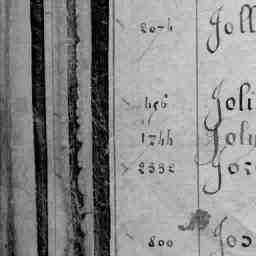 2074 Joll
456 Joli
1744 Joly
2332 Jo
800 Jo